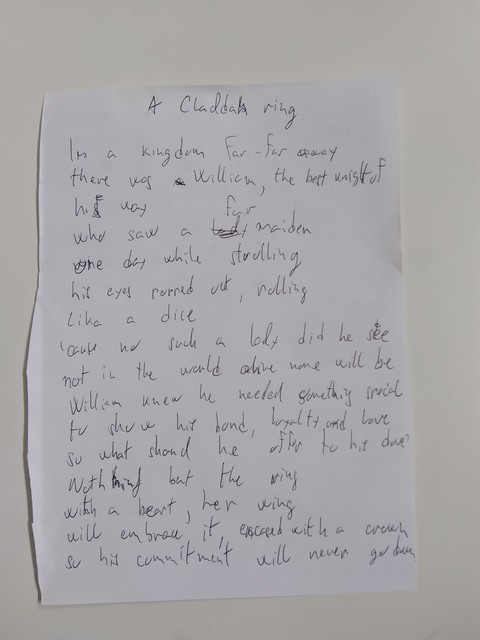 A Claddah ring
In a kingdom far-far away
there was a William, the best knight of
his way
far
who saw a lady maiden
one day while strolling
his eyes rolling
Like a dice
'cause no such a lady did he see
not in the world alive none will be
William knew he needed something special
to show his bond, loyalty and love
so what should he offer to his dove?
Nothing but the ring
with a heart, her wing
will embrace it, encased with a crown
so his commitment will never go down